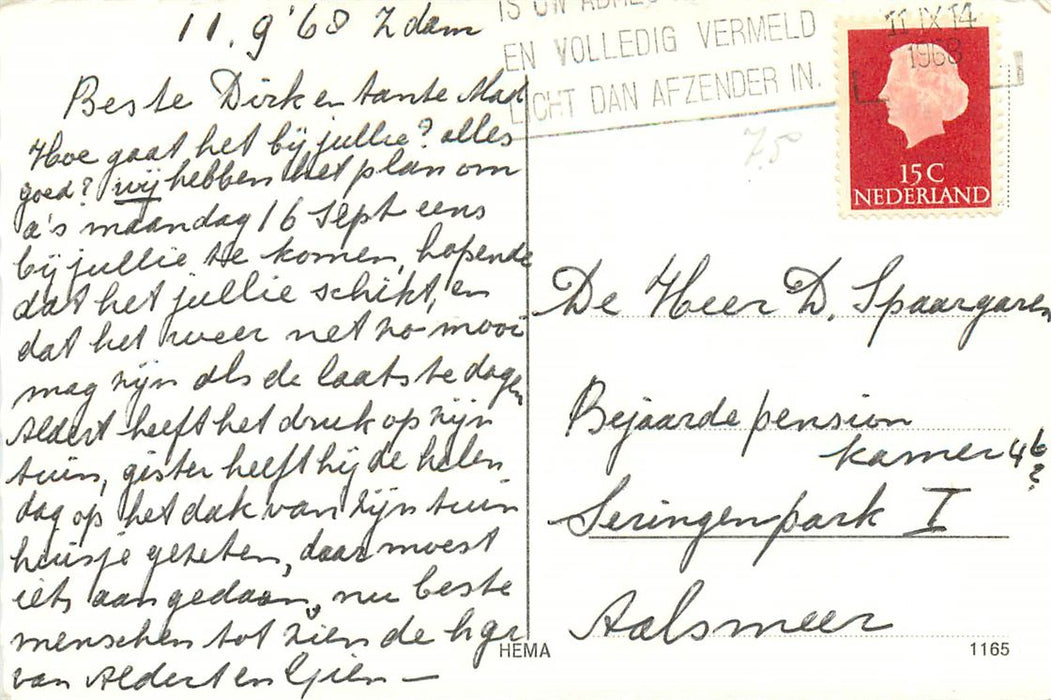 11.9'68 Zdam
Beste Dirk en tante Mad
Hoe gaat het bij jullie? alles
goed? wij hebben het plan om
a's maandag 16 Sept eens
bij jullie te komen, hopende
dat het jullie schikt, en
dat het weer net zo mooi
mag zijn als de laatste dagen
Aldert heeft het druk op zijn
tuin, gister heeft hij de helen
dag op het dak van zijn tuin
huisje gezeten, daar moest
iets aangedaan, nu beste
menschen tot ziens de hgr
van Aldert en Gien —
EN VOLLEDIG VERMELD
LICHT DAN AFZENDER IN.
11 IX 14
1968
7,50
15 C
NEDERLAND
De Heer D. Spaargaren
Bejaardepension
kamer 46
?
Seringenpark I
Aalsmeer
HEMA
1165